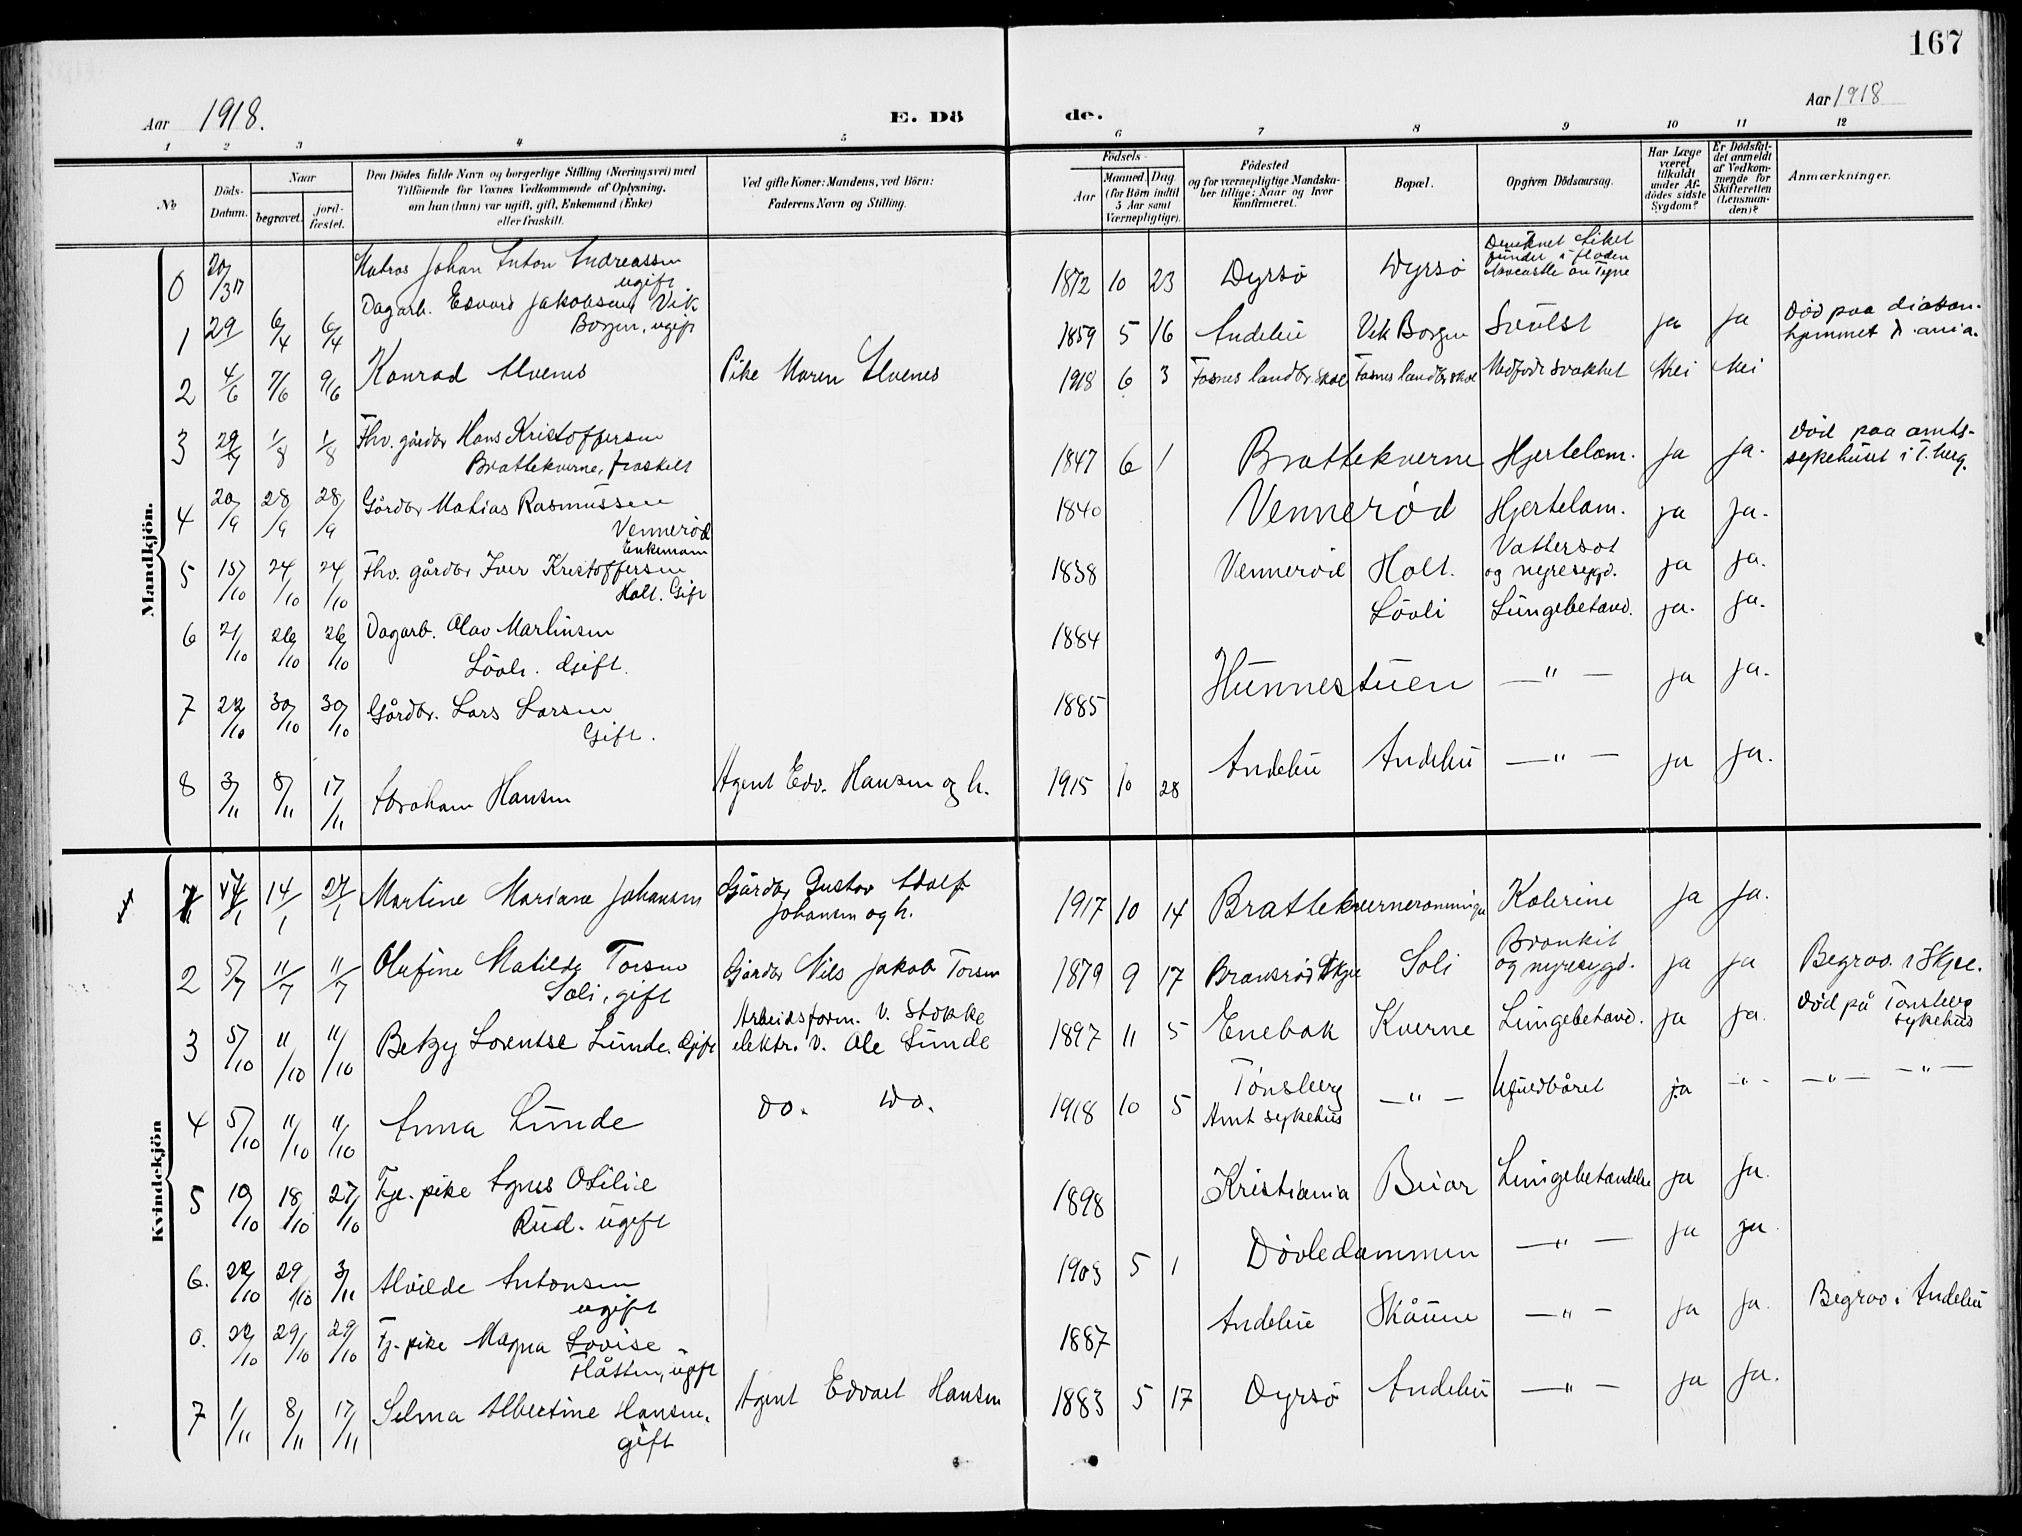 167
Aar 1918.
E. Dö
de.
Aar 1918
1 2 3 4 5 6 7 8 9 10 11 12
№
Döds-Datum.
Naar
begravet.
jord-fæstet.
Den Dödes fulde Navn og borgerlige Stilling (Næringsvei) med
Tilföiende for Voxnes Vedkommende af Oplysning,
om han (hun) var ugift, gift, Enkemand (Enke)
eller fraskilt.
Ved gifte Koner: Mandens, ved Börn:
Faderens Navn og Stilling.
Födsels-
Aar
Maaned. Dag
(for Börn indtil
5 Aar samt
Værnepligtige).
Födested
og for værnepligtige Mandska-
ber tillige: Naar og hvor
konfirmeret.
Bopæl.
Opgiven Dödsaarsag.
Har Læge
været
tilkaldt
under Af-
dödes sidste
Sygdom?
Er Dödsfal-
det anmeldt
af Vedkom-
mende for
Skifteretten
(Lensman-
den)?
Anmærkninger.
Mandkjön.
0 20/3 17 Matros Johan Anton Andreassen ugift 1872 10 23 Dyrsö Dyrsö Druknet Liket funder i floden Newcastle on Tyne
1 29 6/4 6/4 Dagarb. Edvard Jakobsen Vik Borgen, ugift 1859 5 16 Andebu Vik Borgen Svulst ja ja Död paa diakon-hjemmet Kr.ania.
2 4/6 7/6 9/6 Konrad Alvenes Pike Maren Alvenes 1918 6 3 Fosnes landbr.skole Fosnes landbr.skole Medfödt svakhet Nei Nei
3 29/7 1/8 1/8 Fhv. gårdbr Hans Kristoffersen Brattekverne, fraskilt 1847 6 1 Brattekverne Hjertelam. ja ja. Död paa amts-sykehuset i T.berg.
4 20/9 28/9 28/9 Gårdbr Matias Rasmussen Vennerød Enkemann 1840 Vennerød Hjertelam. ja ja.
5 15/10 24/10 24/10 Fhv. gårdbr Iver Kristoffersen Holt. Gift 1838 Vennerød Holt. Vattersot og nyresygd. ja ja.
6 21/10 26/10 26/10 Dagarb. Olav Martinsen Lövli. Gift. 1884 Lövli Lungebetænd. ja. ja.
7 22/10 30/10 30/10 Gårdbr. Lars Larsen Gift. 1885 Hunnestuen —"— ja ja.
8 3/11 8/11 17/11 Abraham Hansen Agent Edv. Hansen og h. 1915 10 28 Andebu Andebu —"— ja ja.
Kvindekjön
1 14/1 27/1 Martine Mariane Johansen Gårdbr Gustav Adolf Johansen og h. 1917 10 14 Brattekverne Kolerine ja ja.
2 5/7 11/7 11/7 Olufine Matilde Torsen Soli, gift Gårdbr Nils Jakob Torsen 1879 9 17 Bransrød Skjee Soli Bronkit og nyresygd. ja ja Begrav. i Skjee.
3 5/10 11/10 11/10 Betzy Lorentse Lunde. Gift Arbeidsform. v. Stokke elektr. v. Ole Lunde 1897 11 5 Enebak Kverne Lungebetænd. ja ja. Död på Tønsberg sykehus
4 5/10 11/10 11/10 Anna Lunde do. do. 1918 10 5 Tønsberg Amt sykehus —"— Ufuldbåret ja —"— —"— —"—
5 10/10 18/10 27/10 Tje. pike Agnes Otilie Rud. ugift 1898 Kristiania Buar Lungebetændelse ja ja.
6. 22/10 29/10 3/11 Alvilde Antonsen ugift 1903 5 1 Dövledammen —"— ja ja.
0. 22/10 29/10 29/10 Tj. pike Magna Lovise Flåtten, ugift 1887 Andebu Skåune —"— ja ja. Begrav i Andebu
7 1/11 8/11 17/11 Selma Albertine Hansen, gift Agent Edvart Hansen 1883 5 17 Dyrsö Andebu —"— ja ja.